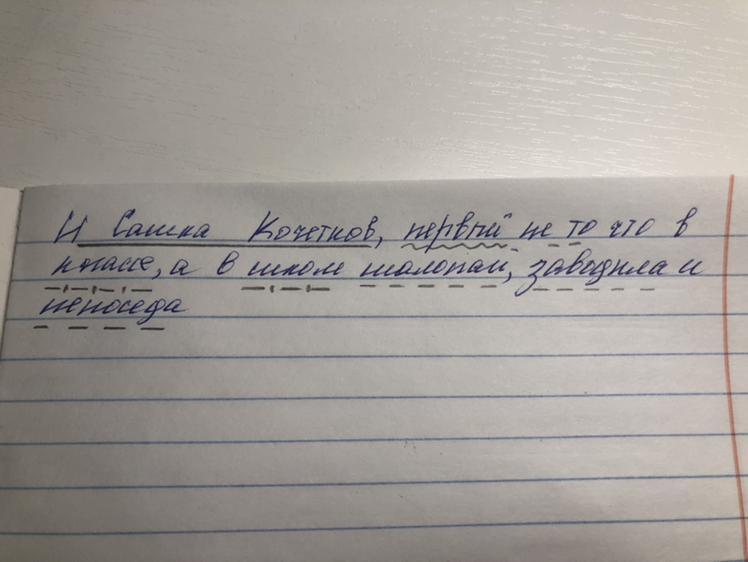 И Сашка Кочетков, первый не то что в
классе, а в школе шалопай, заводила и
непоседа